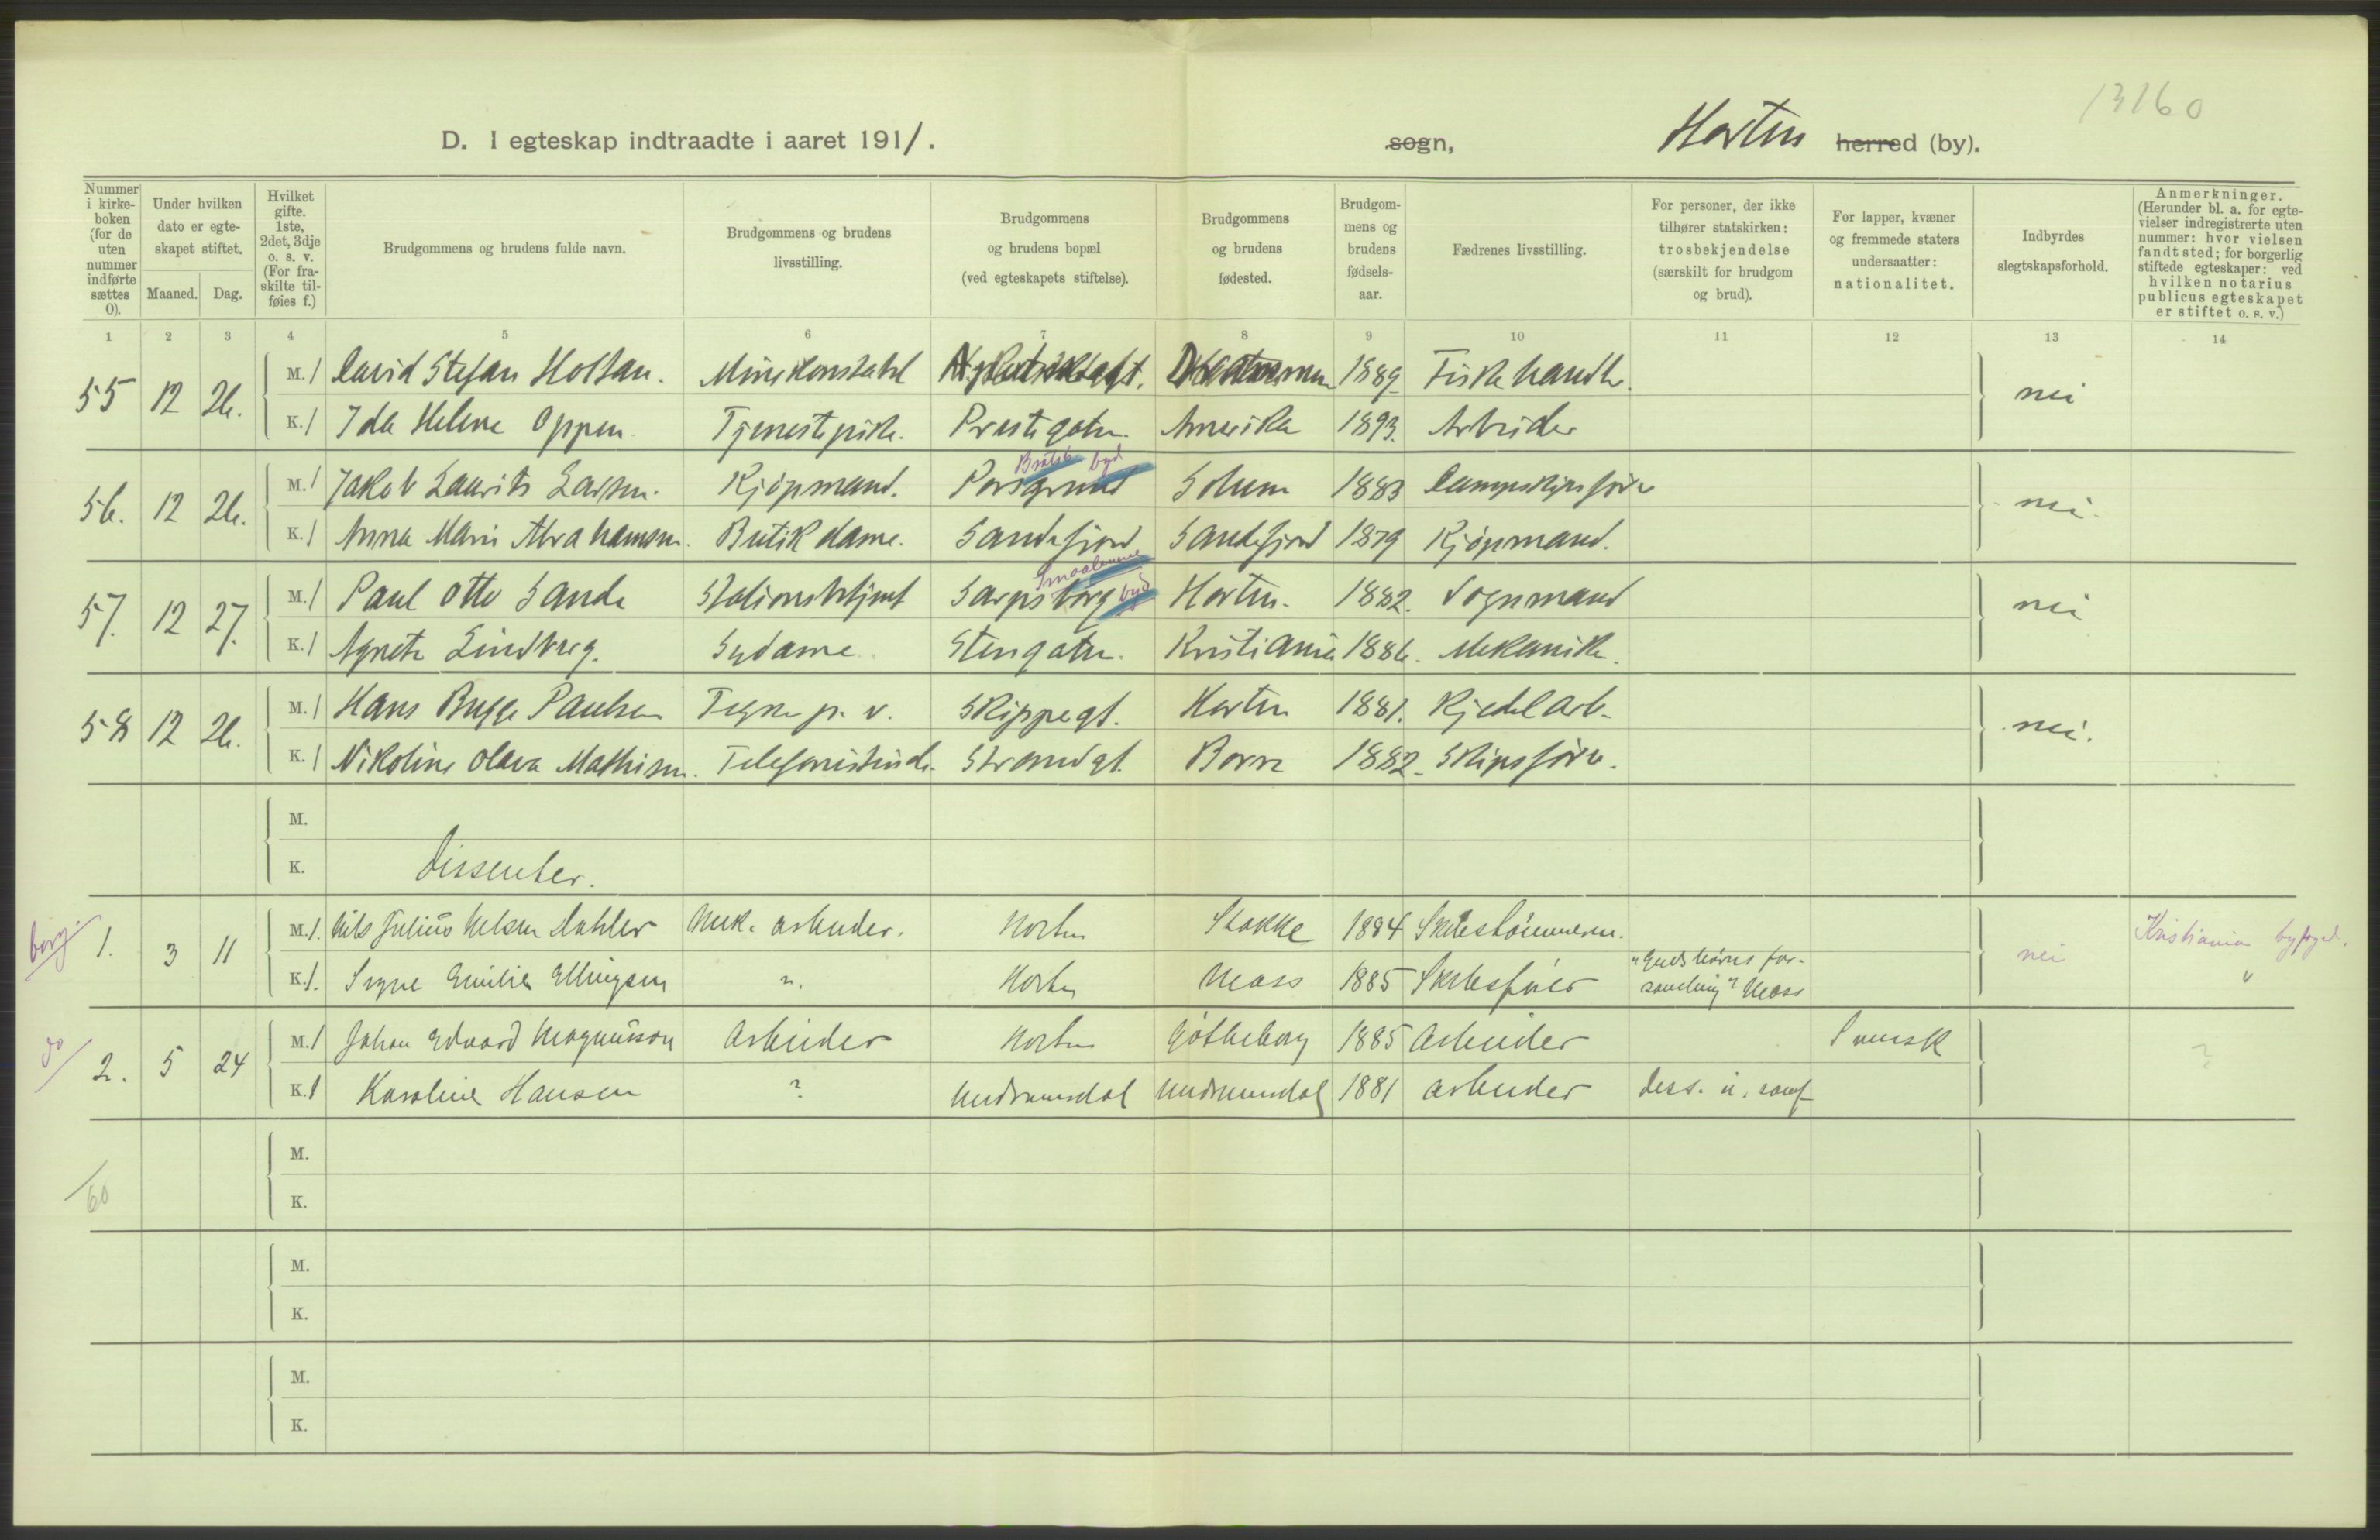 13160
D. I egteskap indtraadte i aaret 1911. sogn, Horten herred (by).
Nummer i kirke-boken (for de uten nummer indførte sættes 0).
Under hvilken dato er egte-skapet stiftet.
Maaned. Dag.
Hvilket gifte. 1ste, 2det, 3dje o. s. v. (For fra-skilte til-føies f.)
Brudgommens og brudens fulde navn.
Brudgommens og brudens livsstilling.
Brudgommens og brudens bopæl (ved egteskapets stiftelse).
Brudgommens og brudens fødested.
Brudgom-mens og brudens fødsels-aar.
Fædrenes livsstilling.
For personer, der ikke tilhører statskirken: trosbekjendelse (særskilt for brudgom og brud).
For lapper, kvæner og fremmede staters undersaatter: nationalitet.
Indbyrdes slegtskapsforhold.
Anmerkninger. (Herunder bl. a. for egte-vielser indregistrerte uten nummer: hvor vielsen fandt sted; for borgerlig stiftede egteskaper: ved hvilken notarius publicus egteskapet er stiftet o. s. v.)
1 2 3 4 5 6 7 8 9 10 11 12 13 14
55 12 26. M. 1 David Stefan Holtan. Minekonstabel 1889 Fiskehandler. nei
K. 1 Ida Helene Oppen. Tjenestepike. Prestegaten. Amerika 1893. Arbeider
Bratsb. byd
56. 12 26. M. 1 Jakob Laurits Larsen. Kjøpmand. Porsgrund Solum 1883 Dampskipsfører nei.
K. 1 Anna Marie Abrahamsen. Butikdame. Sandefjord Sandefjord 1879 Kjøpmand.
Smaalenene byd
57. 12 27. M. 1 Paul Otto Sande Stationsbetjent Sarpsborg Horten. 1882. Vognmand nei
K. 1 Agnete Lindberg. Sydame. Stengaten. Kristiania 1886. Mekaniker.
58 12 26. M. 1 Hans Bugge Paulsen Tegner p. v. Skippergt. Horten 1881. Kjedelarb. nei.
K. 1 Nikoline Olava Mathisen. Telefonistinde. Strandgt. Borre 1882. Skipsfører.
M.
K. Dissenter.
borg. 1. 3 11 M. 1. Nils Julius Nelsen Dahler Mek. arbeider. Horten Stokke 1884 Skibstømmerm. nei Kristiania byfogd.
K. 1. Signe Emilie Ellingsen ". Horten Moss 1885 Skibsfører "Guds børns for-samling" Moss "
do 2. 5 24 M. 1 Johan Edvard Magnusson Arbeider Horten Gøtheborg 1885 Arbeider Svensk ?
K. 1 Karoline Hansen ? Undrumsdal Undrumsdal 1881 arbeider Diss. u. samf
M.
K.
60
M.
K.
M.
K.